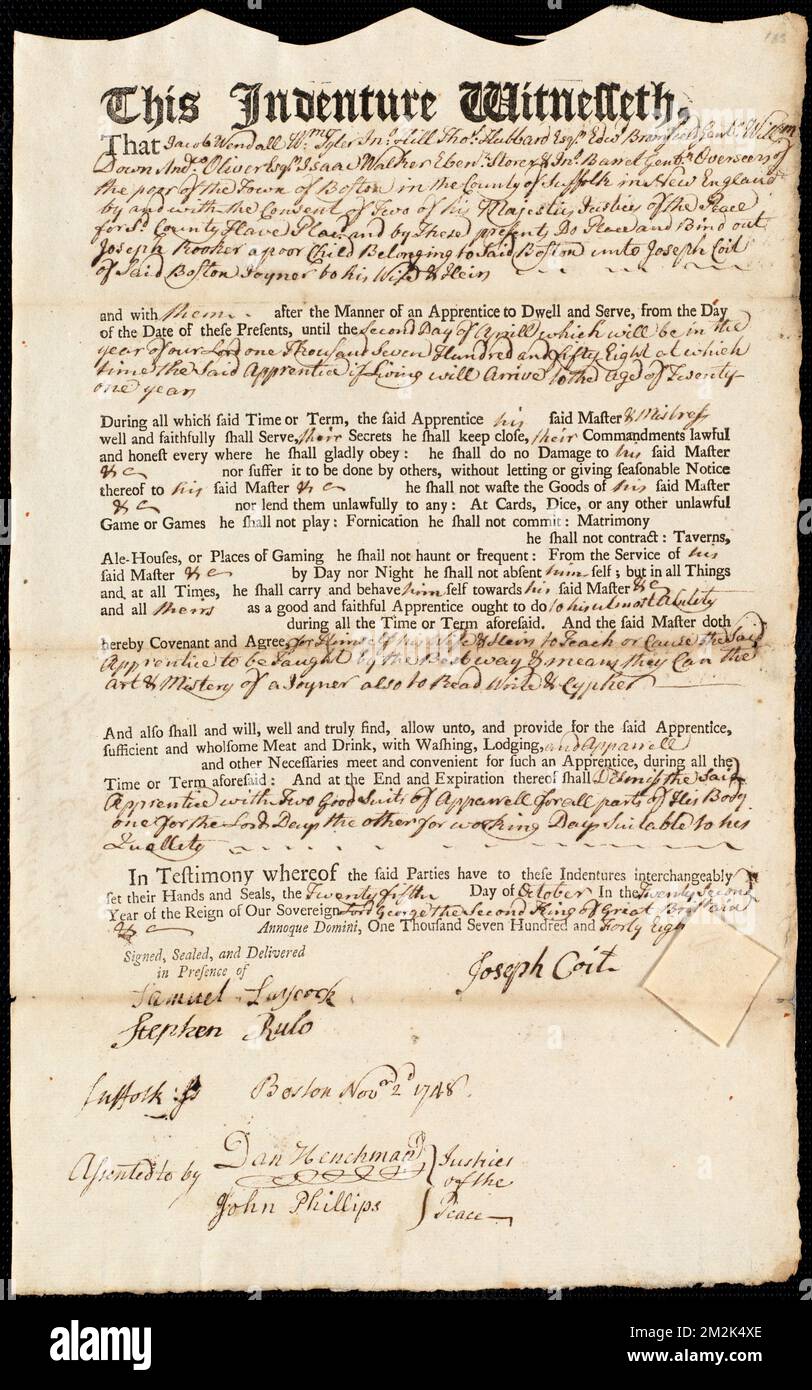 183
This Indenture Witnesseth,
That Jacob Wendall Wm. Tyler Jno. Hill Thos. Hubbard Esqs. Edwd. Bromfield Gentn. Willm
Down Andw. Oliver Esqs. Isaac Walker Ebenr. Storer & Jno. Barret Gentn. Overseers of
the poor of the Town of Boston in the County of Suffolk in New England
by and with the Consent of Two of his Majesties Justices of the Peace
for Sd. County Have Placed and by These presents Do Place and Bind out
Joseph Rooker a poor Child Belonging to Said Boston unto Joseph Coit
of Said Boston Joyner to his Wife & Heirs
and with them after the Manner of an Apprentice to Dwell and Serve, from the Day
of the Date of these Presents, until the Second Day of Aprill which will be in the
year of our Lord one Thousand Seven Hundred and fifty Eight at which
time the Said Apprentice if Living will Arrive to the age of Twenty
one year
During all which said Time or Term, the said Apprentice his said Master & Mistress
well and faithfully shall Serve, their Secrets he shall keep close, their Commandments lawful
and honest every where he shall gladly obey: he shall do no Damage to his said Master
&c nor suffer it to be done by others, without letting or giving seasonable Notice
thereof to his said Master &c he shall not waste the Goods of his said Master
&c nor lend them unlawfully to any: At Cards, Dice, or any other unlawful
Game or Games he shall not play: Fornication he shall not commit: Matrimony
he shall not contract: Taverns,
Ale-Houses, or Places of Gaming he shall not haunt or frequent: From the Service of his
said Master &c by Day nor Night he shall not absent him self; but in all Things
and at all Times, he shall carry and behave him self towards his said Master &c
and all theirs as a good and faithful Apprentice ought to do to his utmost Ability
during all the Time or Term aforesaid. And the said Master doth
hereby Covenant and Agree for Himself his Wife & Heirs to Teach or Cause the Said
Apprentice to be Taught by the Best way & means they Can the
art & Mistery of a Joyner also to Read Write & Cypher
And also shall and will, well and truly find, allow unto, and provide for the said Apprentice,
sufficient and wholsome Meat and Drink, with Washing, Lodging, and Apparrell
and other Necessaries meet and convenient for such an Apprentice, during all the
Time or Term aforesaid: And at the End and Expiration thereof shall Dismiss the Said
Apprentice with Two Good Suits of Apparrell for all parts of His Body
one for the Lords Days the other for working Days Suitable to his
Quallety
In Testimony whereof the said Parties have to these Indentures interchangeably
set their Hands and Seals, the Twenty fifth Day of October In the Twenty Second
Year of the Reign of Our Sovereign Lord George the Second King of Great Brittain
&c Annoque Domini, One Thousand Seven Hundred and Forty Eight
Signed, Sealed, and Delivered
in Presence of
Joseph Coit
Samuel Laycock
Stephen Rulo
Suffolk Ss Boston Novr. 2d 1748.
Assented to by Dan Henchman Justices
of the
John Phillips Peace
alamy
Image ID: 2M2K4XE
www.alamy.com